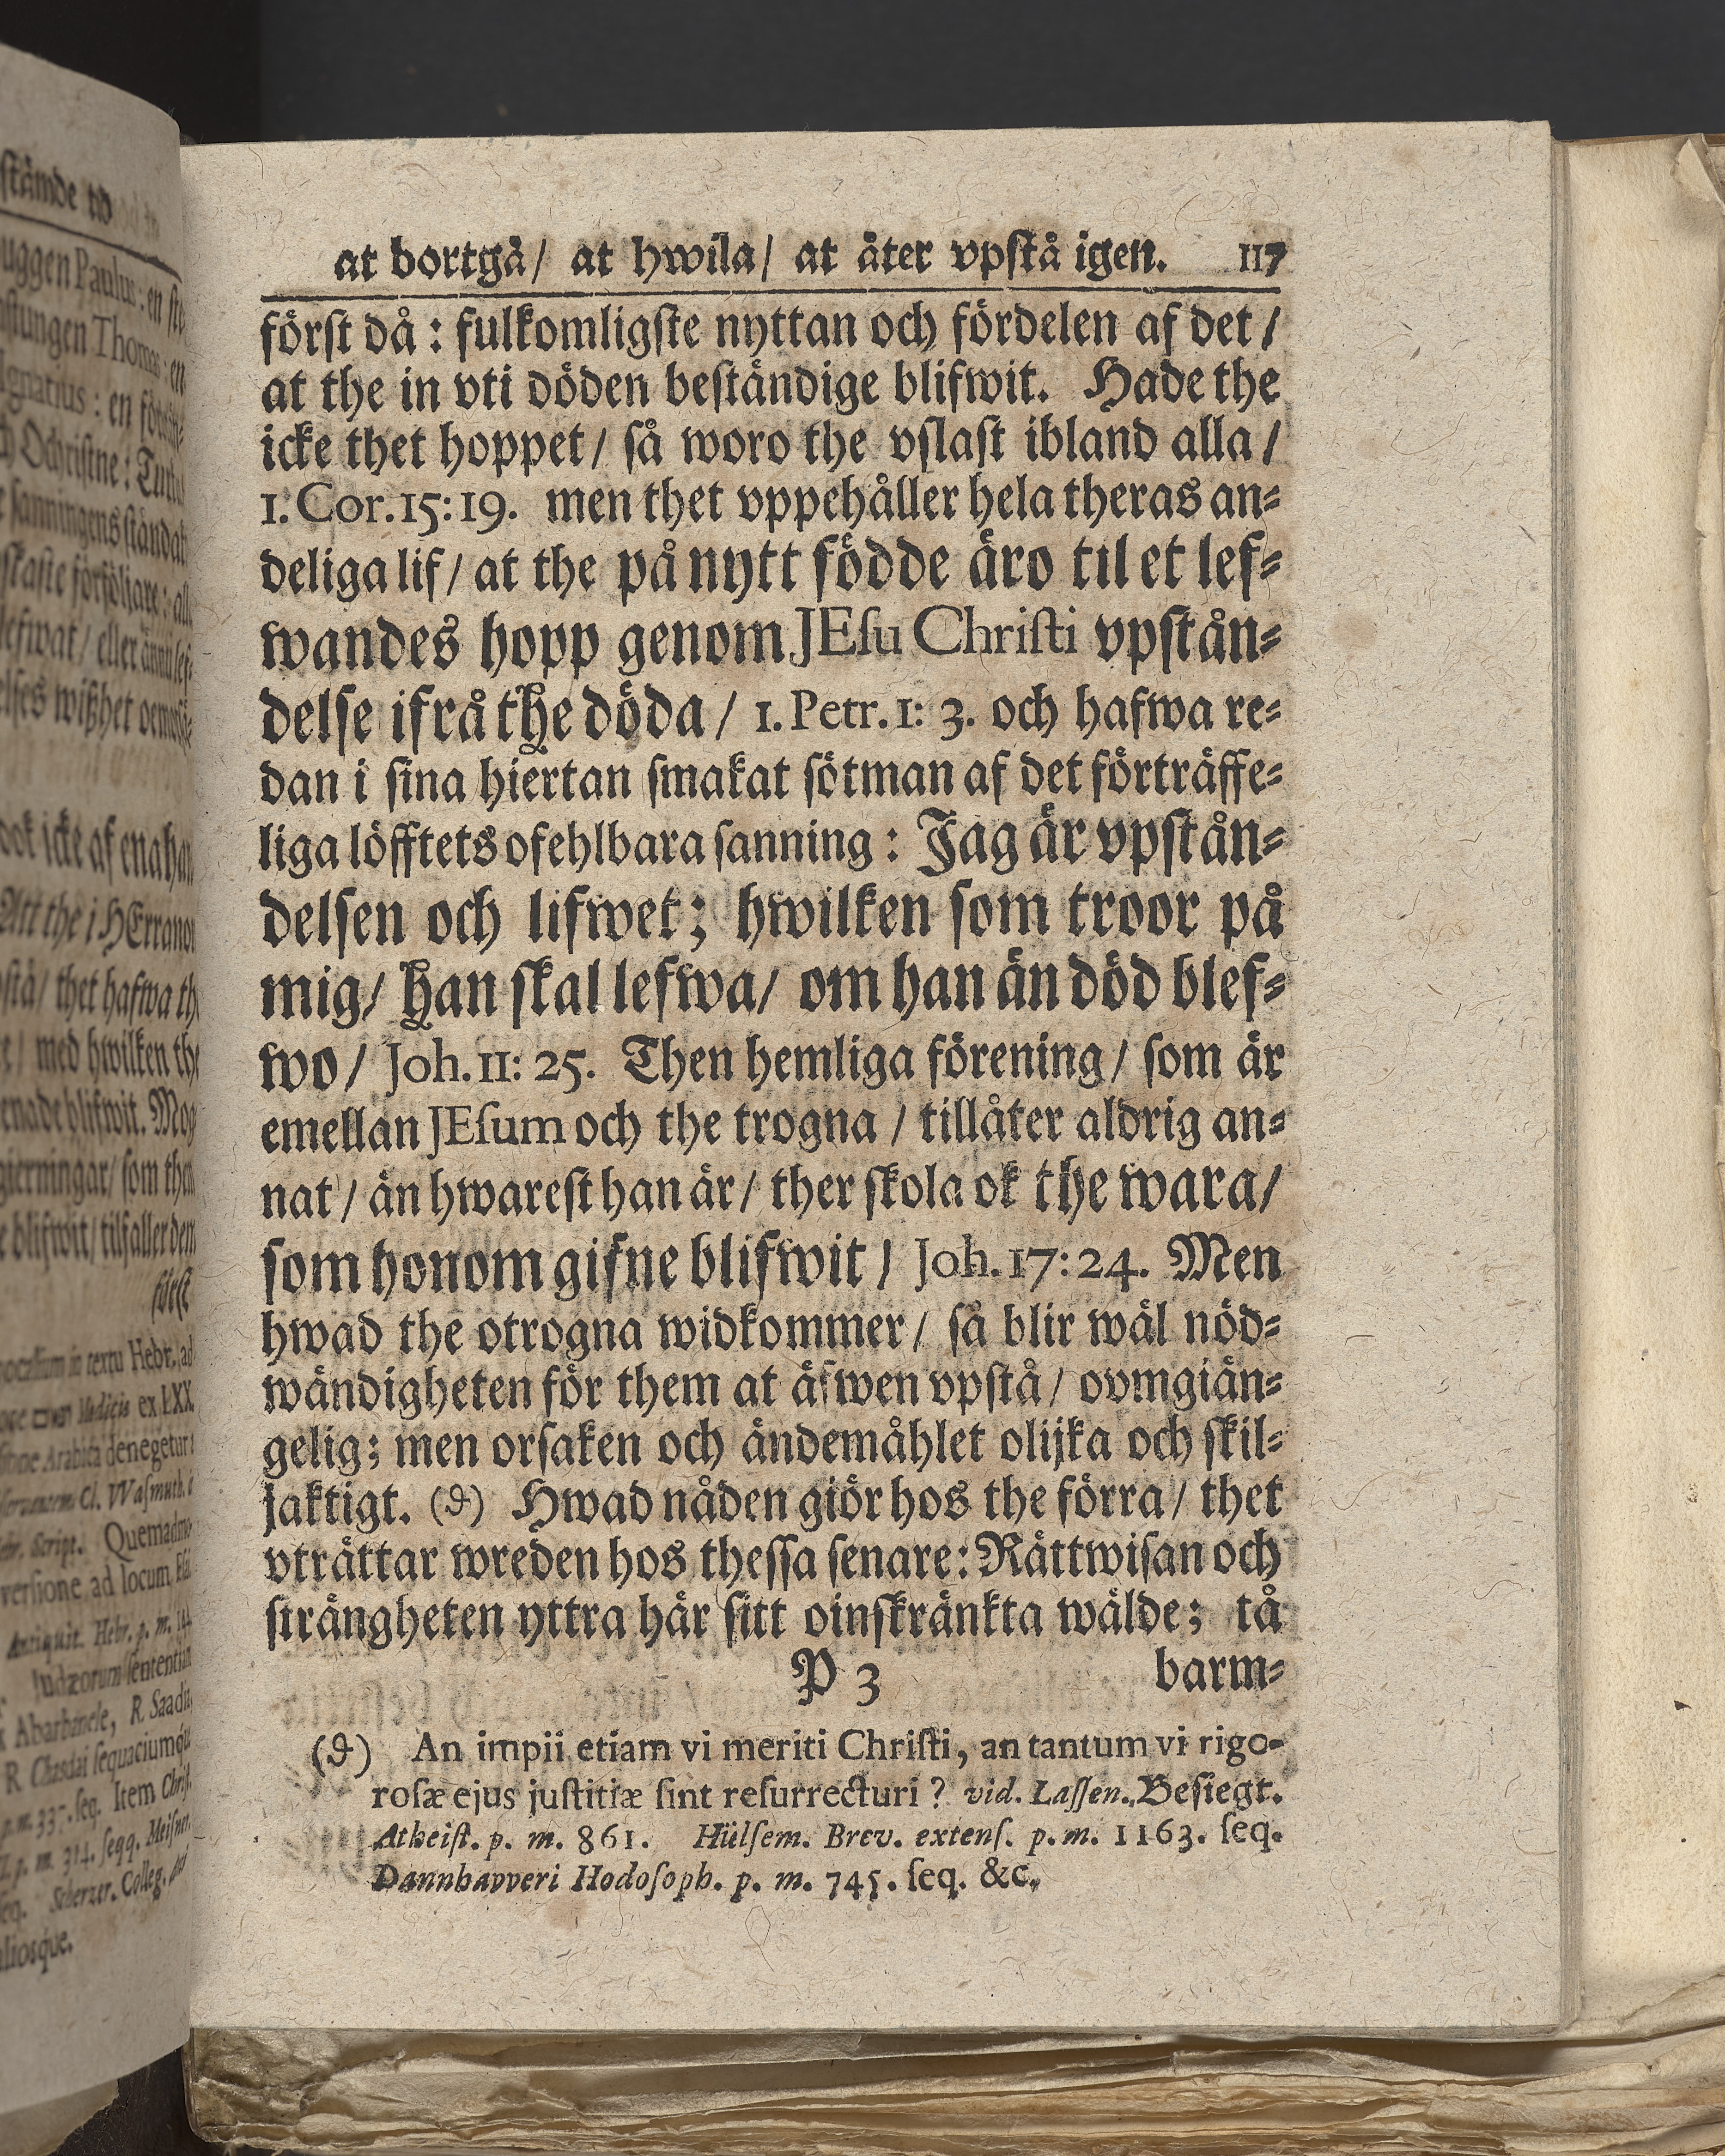 at bortgå/ at hwila/ at åter vpstå igen. 117
först då: fulkomligste nyttan och fördelen af det/
at the in vti döden beständige blifwit. Hade the
icke thet hoppet/ så woro the vslast ibland alla/
1. Cor. 15: 19. men thet vppehåller hela theras an=
deliga lif/ at the på nytt födde äro til et lef=
wandes hopp genom JEsu Christi vpstån=
delse ifrå the döda/ 1. Petr. 1: 3. och hafwa re=
dan i sina hiertan smakat sötman af det förträffe=
liga löfftets ofehlbara sanning: Jag är vpstån=
delsen och lifwet; hwilken som troor på
mig/ han skal lefwa/ om han än död blef=
wo/ Joh. 11: 25. Then hemliga förening/ som är
emellan JEsum och the trogna/ tillåter aldrig an=
nat/ än hwarest han är/ ther skola ok the wara/
som honom gifne blifwit/ Joh. 17: 24. Men
hwad the otrogna widkommer/ så blir wäl nöd=
wändigheten för them at äfwen vpstå/ ovmgiän=
gelig; men orsaken och ändemåhlet olijka och skil=
jaktigt. (d) Hwad nåden giör hos the förra/ thet
vträttar wreden hos thessa senare: Rättwisan och
strängheten yttra här sitt oinskränkta wälde; tå
P 3 barm=
(d) An impii etiam vi meriti Christi, an tantum vi rigo-
rosæ ejus justitiæ sint resurrecturi? vid. Lassen. Besiegt.
Atheist. p. m. 861. Hülsem. Brev. extens. p. m. 1163. seq.
Dannhavveri Hodosoph. p. m. 745. seq. &c.